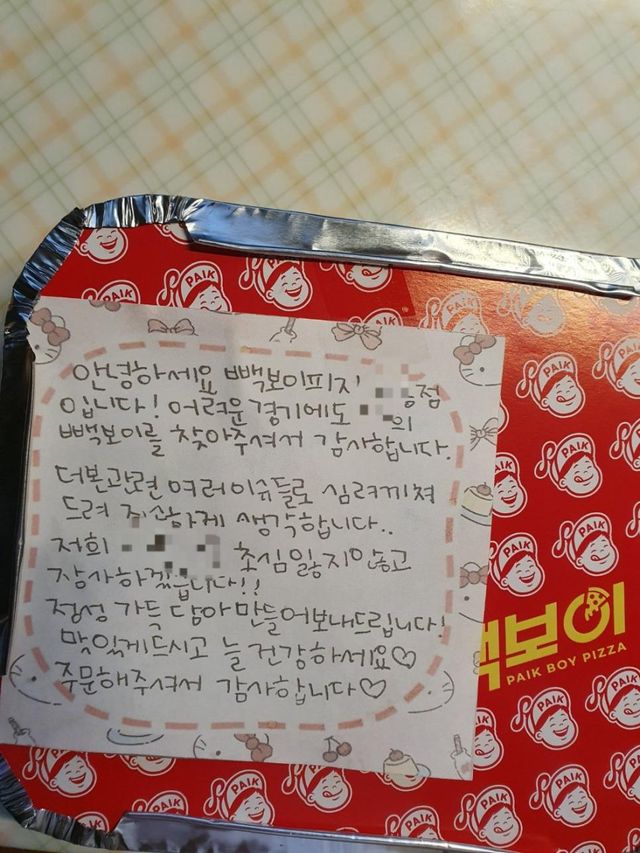 안녕하세요 빽보이피자 점
입니다! 어려운 경기에도 의
빽보이를 찾아주셔서 감사합니다.
더본관련 여러이슈들로 심려끼쳐
드려 죄송하게 생각합니다..
저희 초심 잃지않고
장사하겠습니다!!
정성 가득 담아 만들어보내드립니다!
맛있게드시고 늘 건강하세요♡
주문해주셔서 감사합니다♡
빽보이
PAIK BOY PIZZA
PAIK
PAIK
PAIK
PAIK
PAIK
PAIK
PAIK
PAIK
PAIK
PAIK